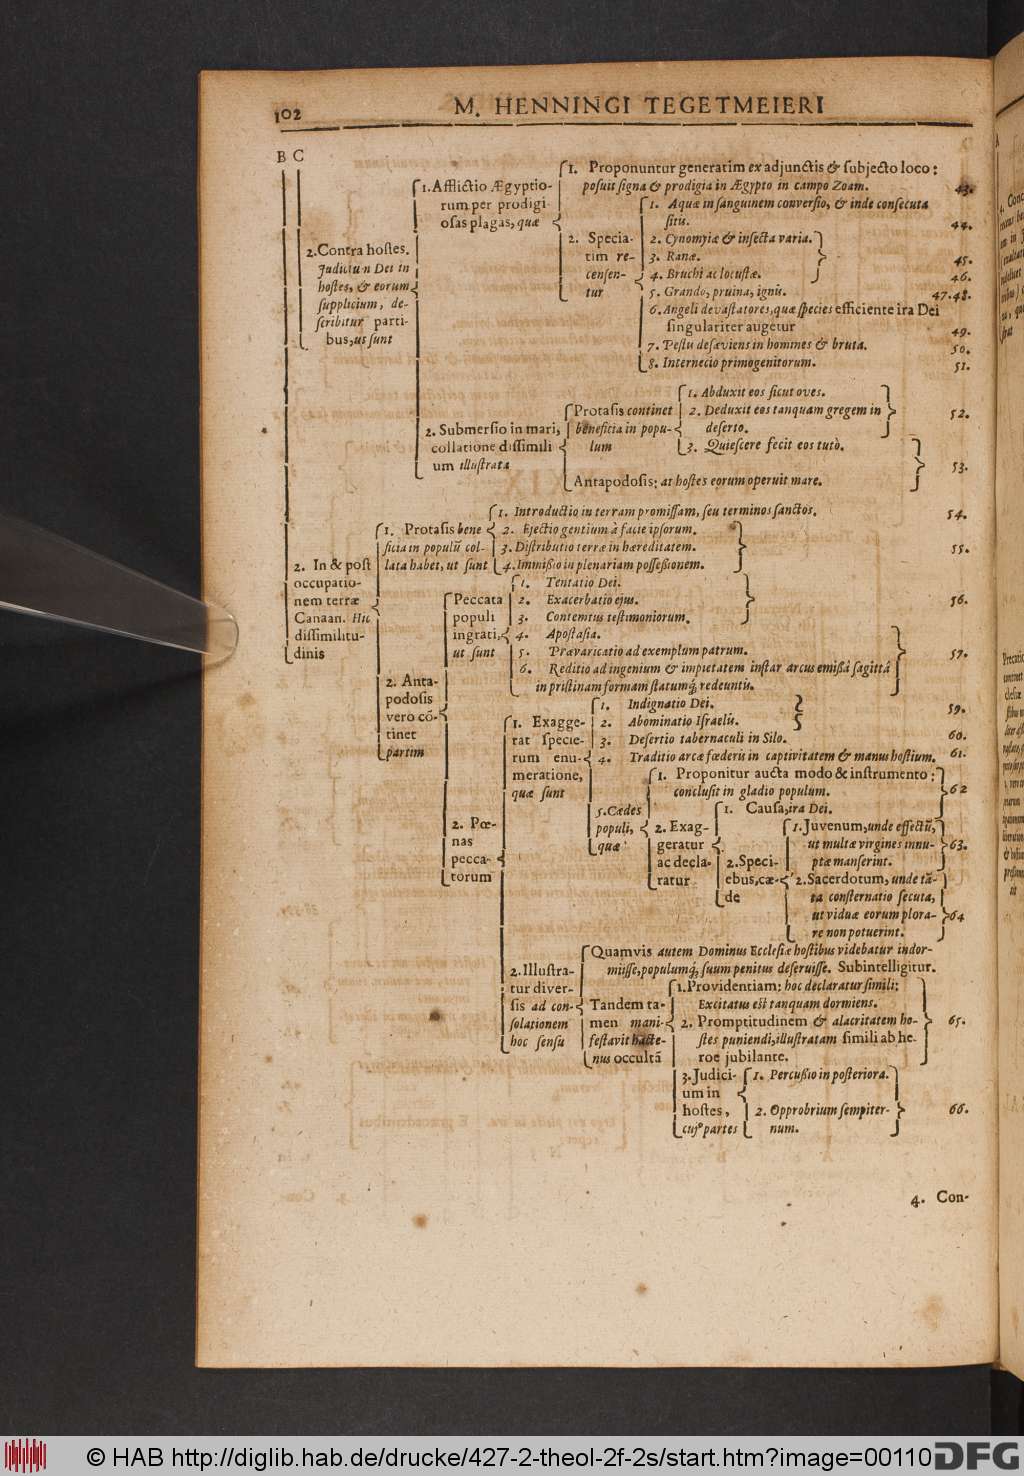 102
M. HENNINGI TEGETMEIERI
B C
2. Contra hostes.
Judiciũ Dei in
hostes, & eorum
supplicium, de-
scribitur parti-
bus, ut sunt
1. Afflictio Ægyptio-
rum per prodigi-
osas plagas, quæ
1. Proponuntur generatim ex adjunctis & subjecto loco:
posuit signa & prodigia in Ægypto in campo Zoam. 43.
2. Specia-
tim re-
censen-
tur
1. Aquæ in sanguinem conversio, & inde consecuta
sitis. 44.
2. Cynomyiæ & insecta varia.
3. Ranæ. 45.
4. Bruchi ac locustæ. 46.
5. Grando, pruina, ignis. 47.48.
6. Angeli devastatores, quæ species efficiente ira Dei
singulariter augetur 49.
7. Pestis desæviens in homines & bruta. 50.
8. Internecio primogenitorum. 51.
2. Submersio in mari,
collatione dissimili
um illustrata
Protasis continet
beneficia in popu-
lum
1. Abduxit eos sicut oves.
2. Deduxit eos tanquam gregem in 52.
deserto.
3. Quiescere fecit eos tutò.
Antapodosis: at hostes eorum operuit mare. 53.
2. In & post
occupatio-
nem terræ
Canaan. Hic
dissimilitu-
dinis
1. Protasis bene
ficia in populũ col-
lata habet, ut sunt
1. Introductio in terram promissam, seu terminos sanctos. 54.
2. Ejectio gentium à facie ipsorum.
3. Distributio terræ in hæreditatem. 55.
4. Immissio in plenariam possessionem.
2. Anta-
podosis
vero cõ-
tinet
partim
Peccata
populi
ingrati,
ut sunt
1. Tentatio Dei.
2. Exacerbatio ejus. 56.
3. Contemtus testimoniorum.
4. Apostasia.
5. Prævaricatio ad exemplum patrum. 57.
6. Reditio ad ingenium & impietatem instar arcus emissâ sagittâ
in pristinam formam statumq́; redeuntis.
2. Pœ-
nas
pecca-
torum
1. Exagge-
rat specie-
rum enu-
meratione,
quæ sunt
1. Indignatio Dei. 59.
2. Abominatio Israelis.
3. Desertio tabernaculi in Silo. 60.
4. Traditio arcæ fœderis in captivitatem & manus hostium. 61.
5. Cædes
populi,
quæ
1. Proponitur aucta modo & instrumento:
conclusit in gladio populum. 62
2. Exag-
geratur
ac decla-
ratur
1. Causa, ira Dei.
2. Speci-
ebus, cæ-
de
1. Juvenum, unde effectũ,
ut multæ virgines innu- 63.
ptæ manserint.
2. Sacerdotum, unde tã-
ta consternatio secuta,
ut viduæ eorum plora- 64
re non potuerint.
2. Illustra-
tur diver-
sis ad con-
solationem
hoc sensu
Quamvis autem Dominus Ecclesiæ hostibus videbatur indor-
miisse, populumq́; suum penitus deseruisse. Subintelligitur.
Tandem ta-
men mani-
festavit hacte-
nus occultã
1. Providentiam: hoc declaratur simili:
Excitatus est tanquam dormiens.
2. Promptitudinem & alacritatem ho- 65.
stes puniendi, illustratam simili ab he-
roe jubilante.
3. Judici-
um in
hostes,
cujꝰ partes
1. Percussio in posteriora.
2. Opprobrium sempiter- 66.
num.
4. Con-
© HAB http://diglib.hab.de/drucke/427-2-theol-2f-2s/start.htm?image=00110
DFG